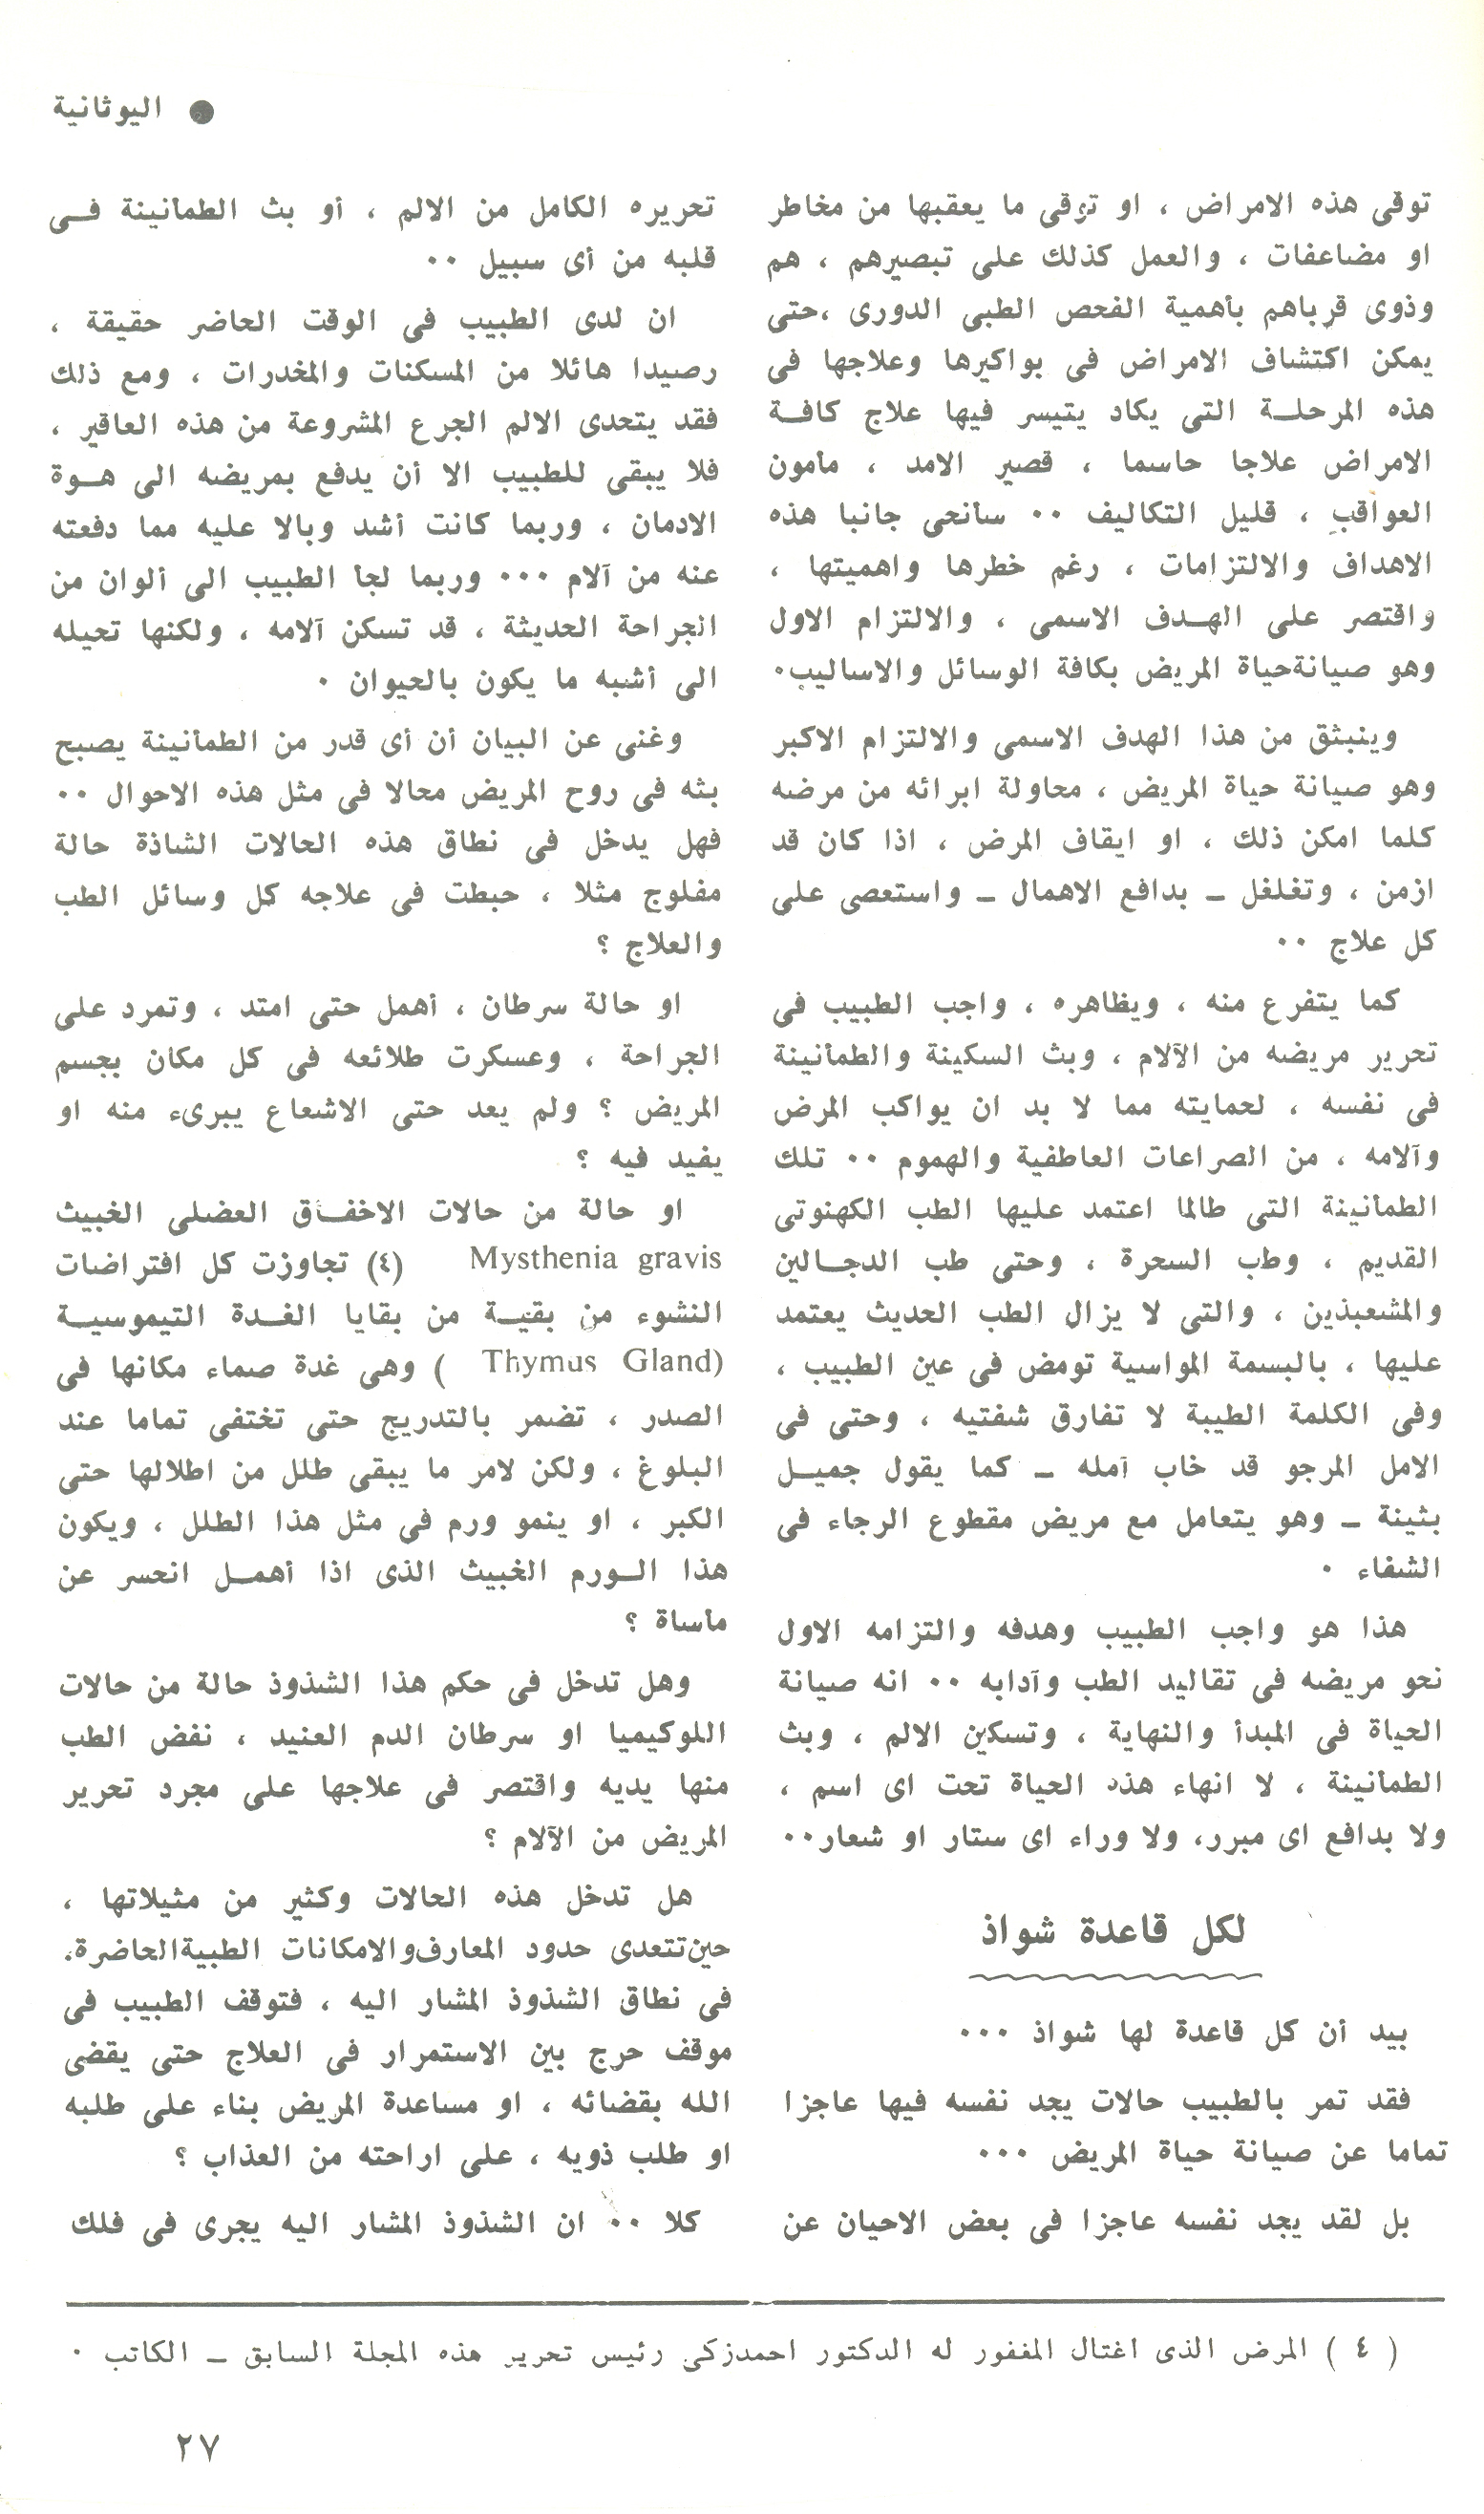 ● اليوثانية
توقى هذه الامراض ، او توقى ما يعقبها من مخاطر
او مضاعفات ، والعمل كذلك على تبصيرهم ، هم
وذوى قرباهم بأهمية الفحص الطبى الدورى ،حتى
يمكن اكتشاف الامراض فى بواكيرها وعلاجها فى
هذه المرحلة التى يكاد يتيسر فيها علاج كافة
الامراض علاجا حاسما ، قصير الامد ، مأمون
العواقب ، قليل التكاليف ٠٠ سأنحى جانبا هذه
الاهداف والالتزامات ، رغم خطرها واهميتها ،
واقتصر على الهدف الاسمى ، والالتزام الاول
وهو صيانة حياة المريض بكافة الوسائل والاساليب٠
وينبثق من هذا الهدف الاسمى والالتزام الاكبر
وهو صيانة حياة المريض ، محاولة ابرائه من مرضه
كلما امكن ذلك ، او ايقاف المرض ، اذا كان قد
ازمن ، وتغلغل ـ بدافع الاهمال ـ واستعصى على
كل علاج ٠٠
كما يتفرع منه ، ويظاهره ، واجب الطبيب فى
تحرير مريضه من الآلام ، وبث السكينة والطمأنينة
فى نفسه ، لحمايته مما لا بد ان يواكب المرض
وآلامه ، من الصراعات العاطفية والهموم ٠٠ تلك
الطمأنينة التى طالما اعتمد عليها الطب الكهنوتى
القديم ، وطب السحرة ، وحتى طب الدجالين
والمشعبذين ، والتى لا يزال الطب الحديث يعتمد
عليها ، بالبسمة المواسية تومض فى عين الطبيب ،
وفى الكلمة الطيبة لا تفارق شفتيه ، وحتى فى
الامل المرجو قد خاب آمله ـ كما يقول جميل
بثينة ـ وهو يتعامل مع مريض مقطوع الرجاء فى
الشفاء ٠
هذا هو واجب الطبيب وهدفه والتزامه الاول
نحو مريضه فى تقاليد الطب وآدابه ٠٠ انه صيانة
الحياة فى المبدأ والنهاية ، وتسكين الالم ، وبث
الطمأنينة ، لا انهاء هذه الحياة تحت اى اسم ،
ولا بدافع اى مبرر، ولا وراء اى ستار او شعار٠٠
لكل قاعدة شواذ
بيد أن كل قاعدة لها شواذ ٠٠٠
فقد تمر بالطبيب حالات يجد نفسه فيها عاجزا
تماما عن صيانة حياة المريض ٠٠٠
بل لقد يجد نفسه عاجزا فى بعض الاحيان عن
تحريره الكامل من الالم ، أو بث الطمأنينة فى
قلبه من أى سبيل ٠٠
ان لدى الطبيب فى الوقت الحاضر حقيقة ،
رصيدا هائلا من المسكنات والمخدرات ، ومع ذلك
فقد يتحدى الالم الجرع المشروعة من هذه العاقير ،
فلا يبقى للطبيب الا أن يدفع بمريضه الى هوة
الادمان ، وربما كانت أشد وبالا عليه مما دفعته
عنه من آلام ٠٠٠ وربما لجأ الطبيب الى ألوان من
الجراحة الحديثة ، قد تسكن آلامه ، ولكنها تحيله
الى أشبه ما يكون بالحيوان ٠
وغنى عن البيان أن أى قدر من الطمأنينة يصبح
بثه فى روح المريض محالا فى مثل هذه الاحوال ٠٠
فهل يدخل فى نطاق هذه الحالات الشاذة حالة
مفلوج مثلا ، حبطت فى علاجه كل وسائل الطب
والعلاج ؟
او حالة سرطان ، أهمل حتى امتد ، وتمرد على
الجراحة ، وعسكرت طلائعه فى كل مكان بجسم
المريض ؟ ولم يعد حتى الاشعاع يبرىء منه او
يفيد فيه ؟
او حالة من حالات الاخفاق العضلى الخبيث
Mysthenia gravis (٤) تجاوزت كل افتراضات
النشوء من بقية من بقايا الغدة التيموسية
(Thymus Gland ) وهى غدة صماء مكانها فى
الصدر ، تضمر بالتدريج حتى تختفى تماما عند
البلوغ ، ولكن لامر ما يبقى طلل من اطلالها حتى
الكبر ، او ينمو ورم فى مثل هذا الطلل ، ويكون
هذا الورم الخبيث الذى اذا أهمل انحسر عن
مأساة ؟
وهل تدخل فى حكم هذا الشذوذ حالة من حالات
اللوكيميا او سرطان الدم العنيد ، نفض الطب
منها يديه واقتصر فى علاجها على مجرد تحرير
المريض من الآلام ؟
هل تدخل هذه الحالات وكثير من مثيلاتها ،
حين تتعدى حدود المعارف والامكانات الطبية الحاضرة.
فى نطاق الشذوذ المشار اليه ، فتوقف الطبيب فى
موقف حرج بين الاستمرار فى العلاج حتى يقضى
الله بقضائه ، او مساعدة المريض بناء على طلبه
او طلب ذويه ، على اراحته من العذاب ؟
كلا ٠٠ ان الشذوذ المشار اليه يجرى فى فلك
( ٤ ) المرض الذى اغتال المغفور له الدكتور احمدزكى رئيس تحرير هذه المجلة السابق ـ الكاتب ٠
٢٧